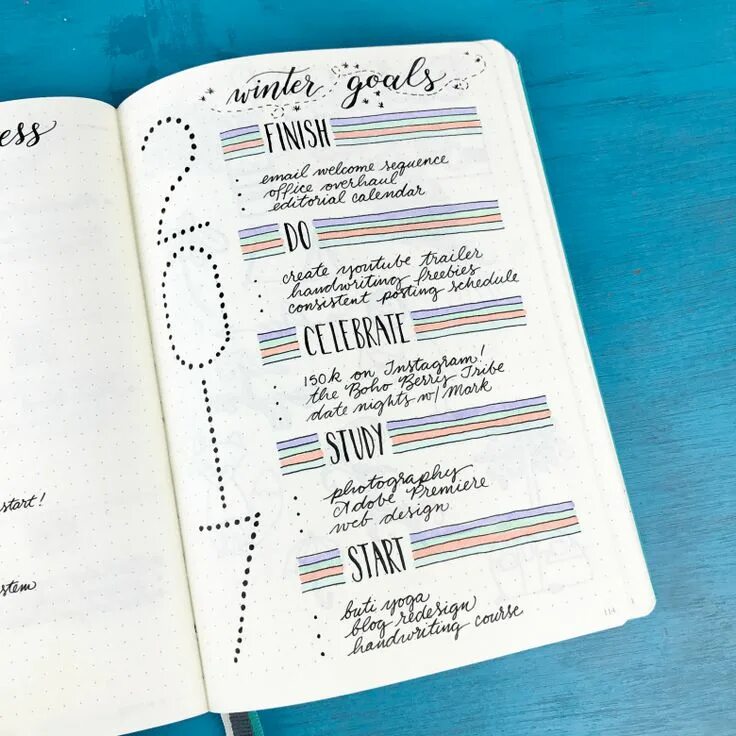 ess
start!
stem
winter goals
2017
FINISH
email welcome sequence
office overhaul
editorial calendar
DO
create youtube trailer
handwriting freebies
consistent posting schedule
CELEBRATE
150k on Instagram!
the Boho Berry Tribe
date nights w/ Mark
STUDY
photography
Adobe Premiere
web design
START
buti yoga
blog redesign
handwriting course
114